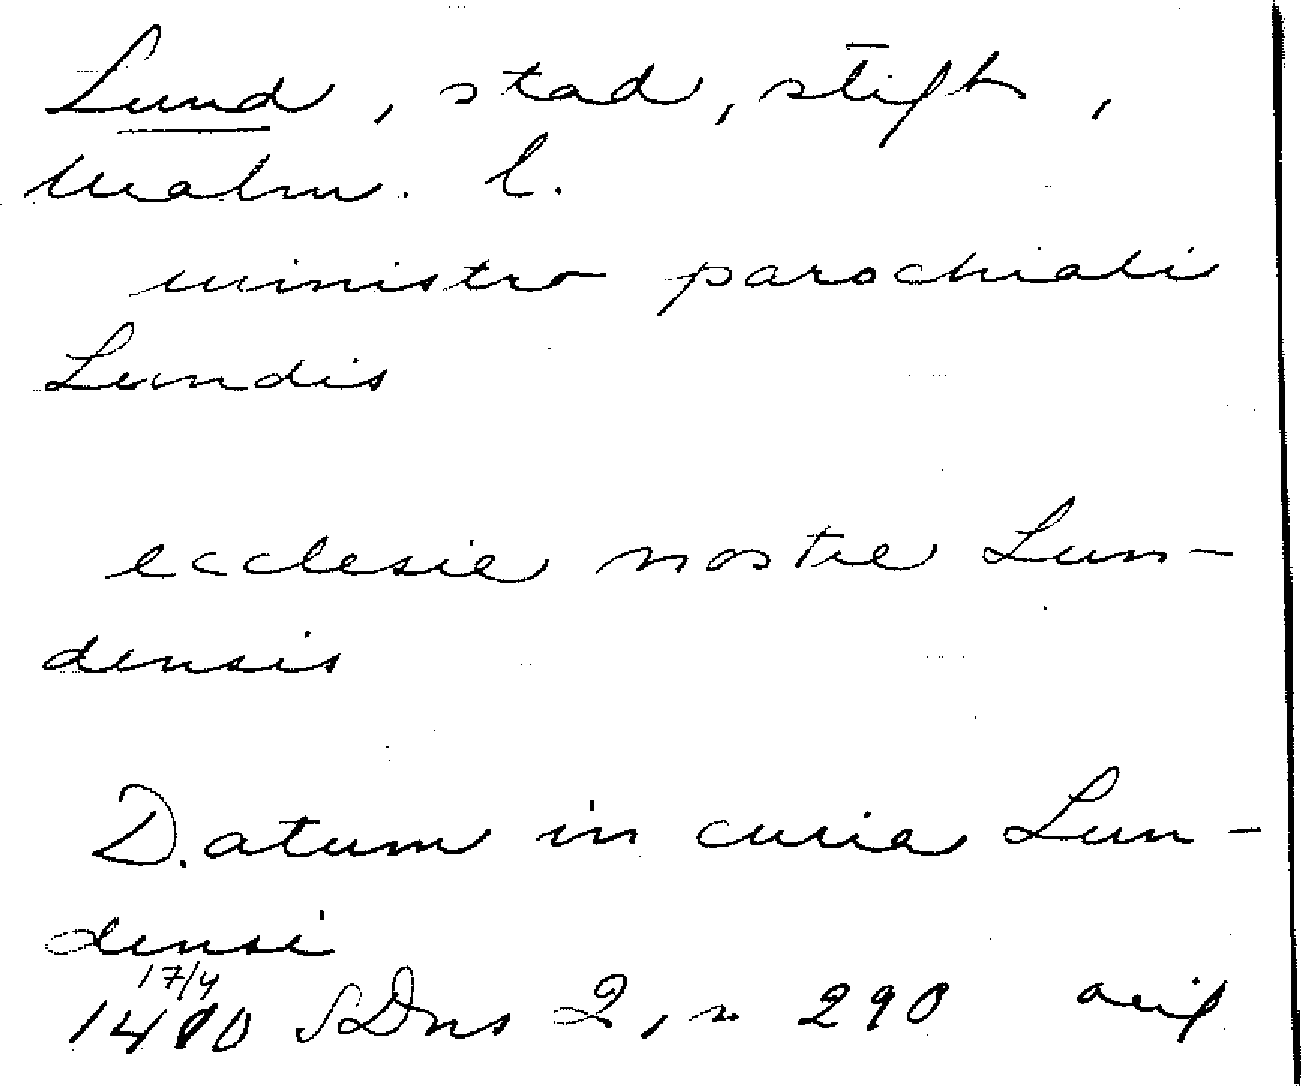 Lund, stad, stift,
Malm. l.
ministro parochiali
Lundis
ecclesie nostre Lun-
densis
Datum in curia Lun-
densi
17/4
1410 SDns 2, n 290 avs